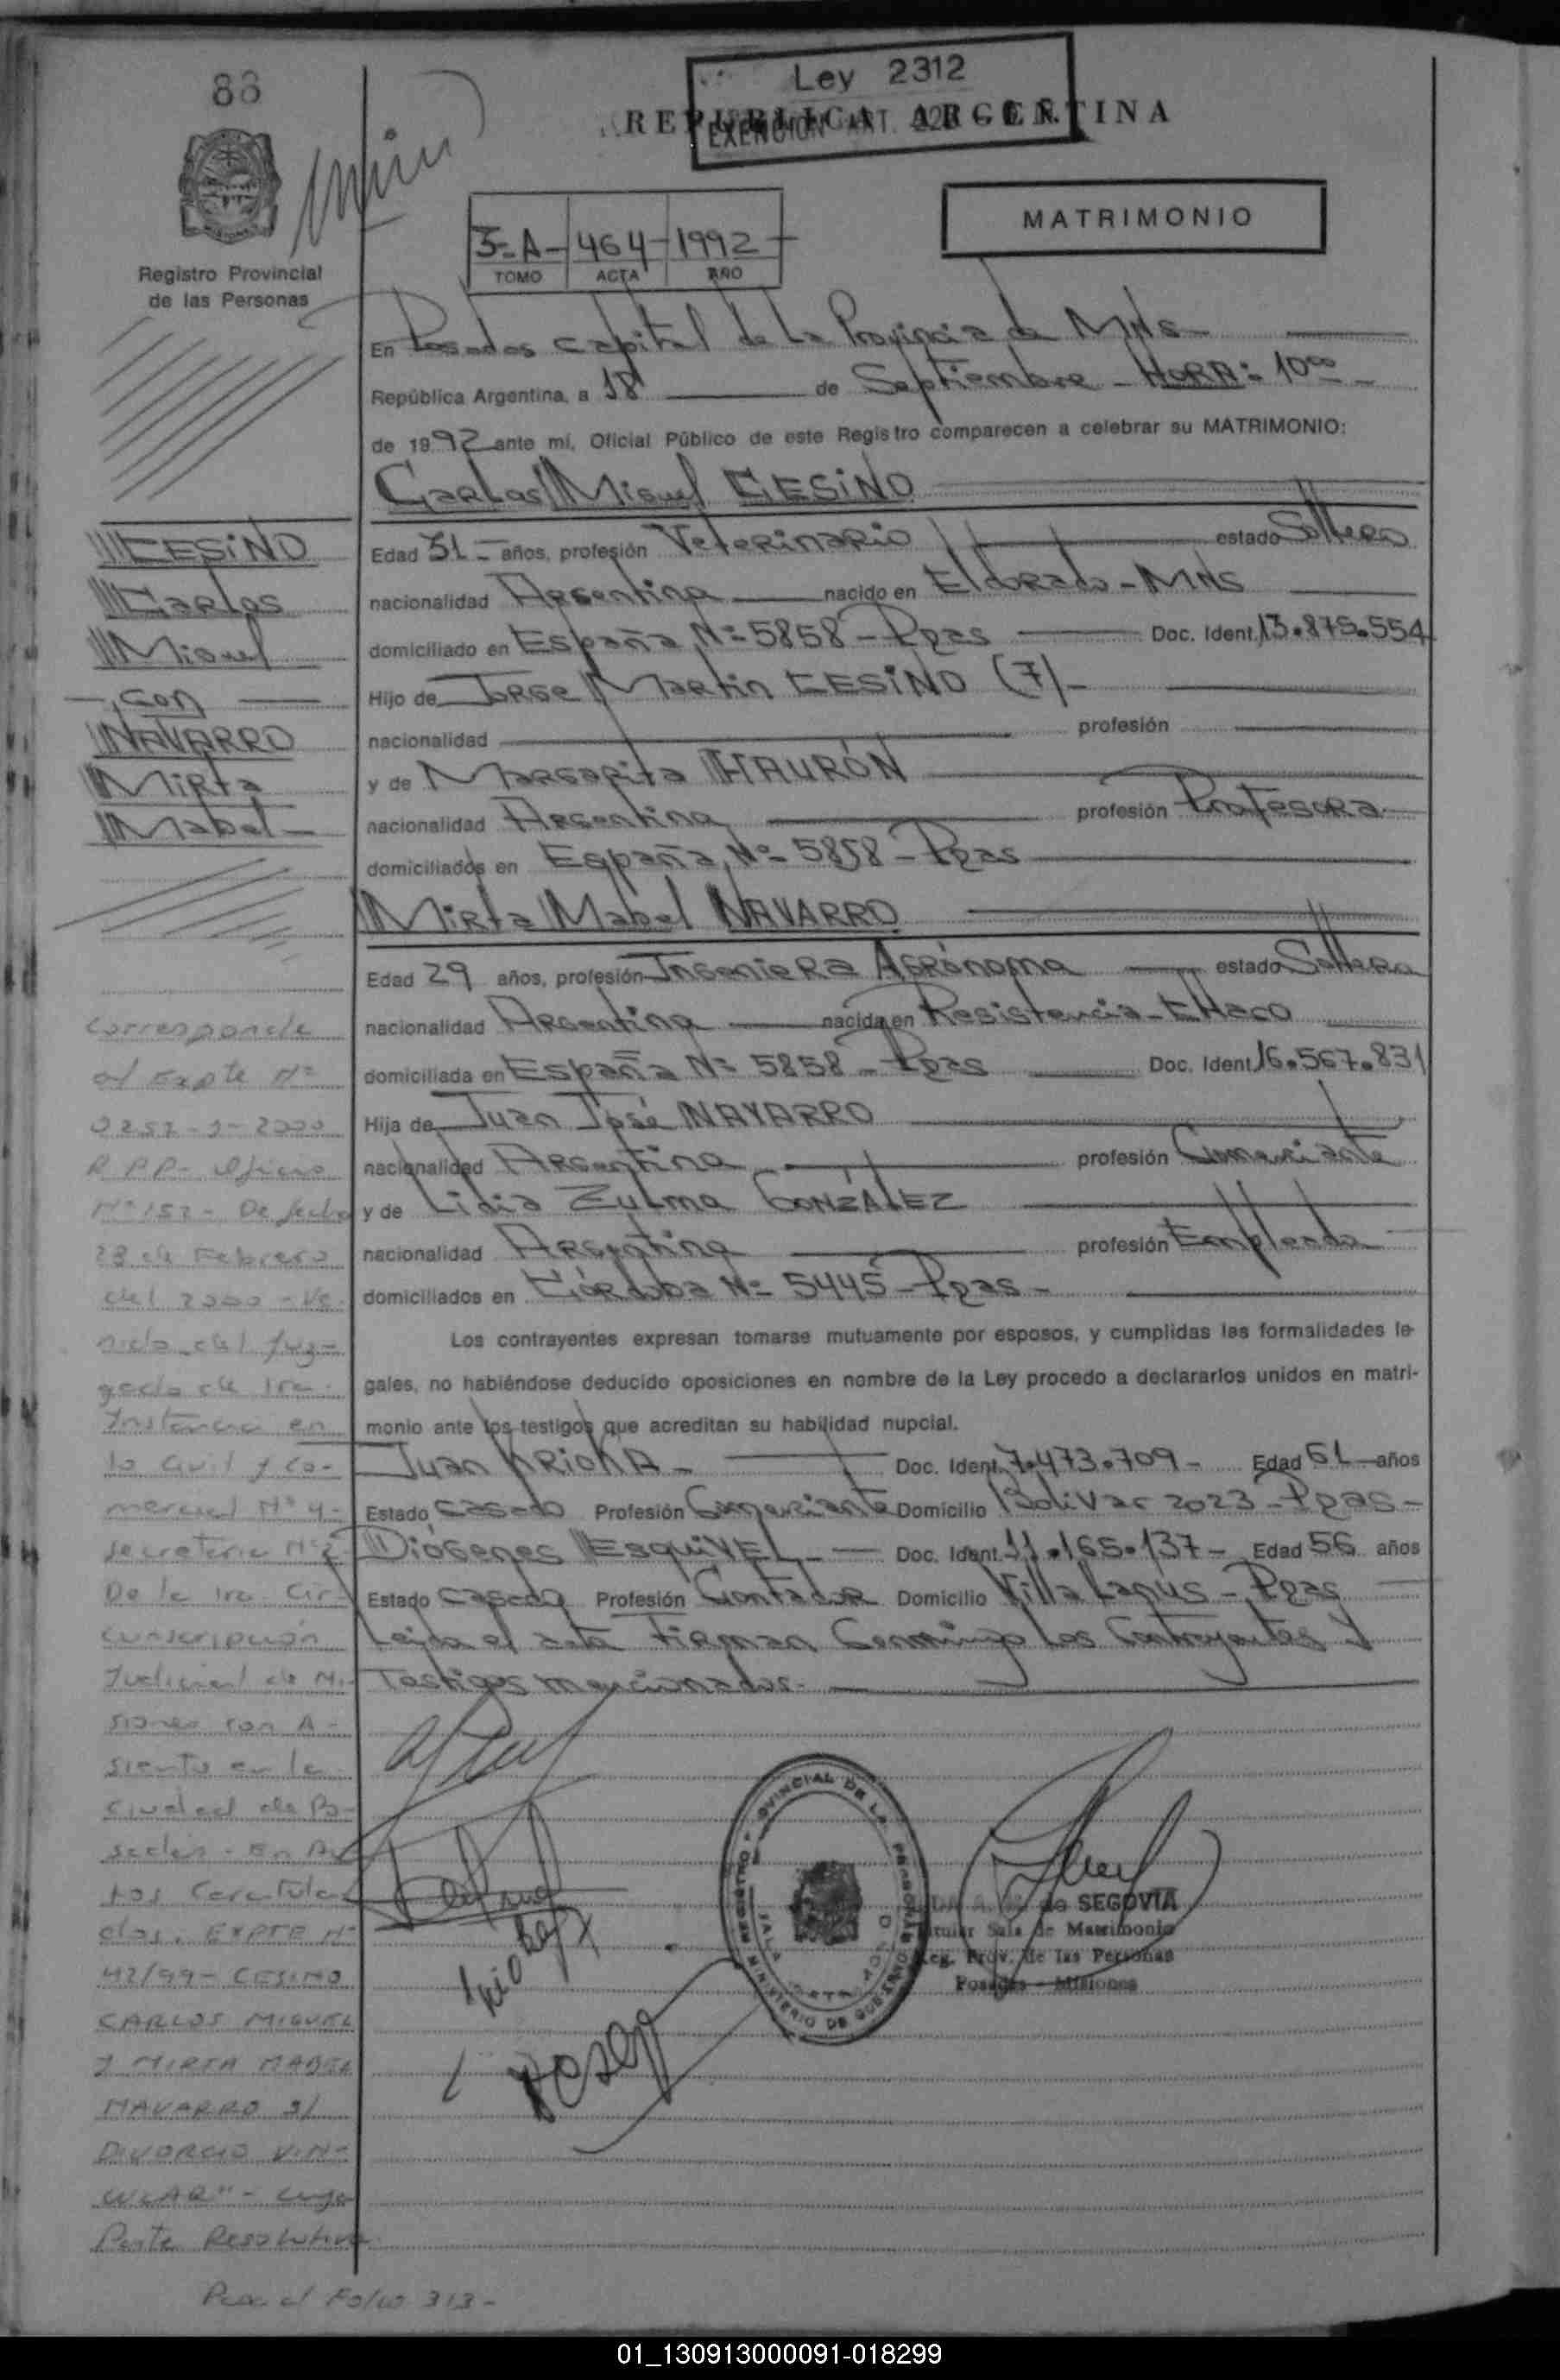 88
Ley 2312
REPUBLICA ARGENTINA
EXENCION ART.
MATRIMONIO
3-A- 464- 1992-
TOMO ACTA AÑO
Registro Provincial
de las Personas
En Posadas capital de La Provincia de Mnes
República Argentina, a 18 de Septiembre - HORA: 10⁰⁰ -
de 1992 ante mi, Oficial Público de este Registro comparecen a celebrar su MATRIMONIO:
Carlos Miguel CESINO
CESINO
Carlos
Miguel
con
NAVARRO
Mirta
Mabel
Edad 31 - años, profesión Veterinario estado Soltero
nacionalidad Argentina nacido en Eldorado - Mnes
domiciliado en España Nº 5858 - Pdas Doc. Ident. 13.875.554
Hijo de Jorge Martin CESINO (7)-
nacionalidad profesión
y de Margarita HAURÓN
nacionalidad Argentina profesión Profesora
domiciliados en España Nº 5858 - Pdas
Mirta Mabel NAVARRO
Edad 29 años, profesión Ingeniera Agrónoma estado Soltera
nacionalidad Argentina nacida en Resistencia - Chaco
domiciliada en España Nº 5858 - Pdas Doc. Ident. 16.567.831
Hija de Juan José NAVARRO
nacionalidad Argentina profesión Comerciante
y de Lidia Zulma GONZÁLEZ
nacionalidad Argentina profesión Empleada
domiciliados en Córdoba Nº 5445 - Pdas -
Los contrayentes expresan tomarse mutuamente por esposos, y cumplidas las formalidades le-
gales, no habiéndose deducido oposiciones en nombre de la Ley procedo a declararlos unidos en matri-
monio ante los testigos que acreditan su habilidad nupcial.
Juan Doc. Ident. 7.473.709 - Edad 61 años
Estado casado Profesión Comerciante Domicilio Bolívar 2023 - Pdas -
Diógenes EsquiVEL Doc. Ident. 11.165.137 - Edad 56 años
Estado casado Profesión Contador Domicilio Villa Lanús - Pdas
Leída el acta firman Conmigo los Contrayentes y
Testigos mencionados.
Corresponde
al Expte Nº
2000
R.P.P- Oficio
Nº 152 - De fecha
23 de Febrero
del 2000 - Ve-
nido del Juz-
gado de 1ra.
Instancia en
lo Civil y Co-
mercial Nº 4 -
Secretaria Nº 2
De la 1ra. Cir-
cunscripción
Judicial de Mi-
siones con A-
siento en la
Ciudad de Po-
sadas - En Au-
tos Caratula-
dos. EXPTE Nº
42/99 - CESINO
CARLOS MIGUEL
Y MIRTA MABEL
NAVARRO S/
DIVORCIO VIN-
CULAR" - cuya
Parte Resolutiva
Pasa al Folio 313 -
REGISTRO PROVINCIAL DE LAS PERSONAS
MINISTERIO DE GOBIERNO
de SEGOVIA
Titular Sala de Matrimonio
Reg. Prov. de las Personas
Posadas - Misiones
01_130913000091-018299